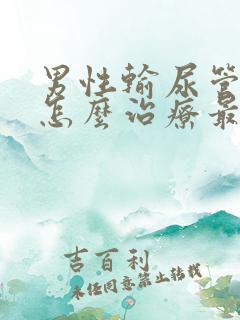 男性輸尿管
怎麼治療最
吉百利
未经同意禁止转载